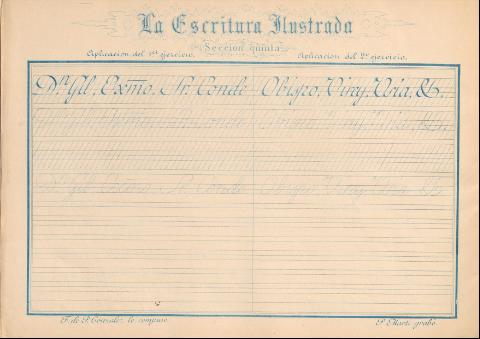 La Escritura Ilustrada
Sección quinta
Aplicación del 1er ejercicio.
Aplicación del 2º ejercicio.
Dn. Gil, Exmo. Sr. Conde
Obispo, Virey, &.
Dn. Gil Exmo Sr Conde
Obispo, Virey, &
lo compuso.
grabó.